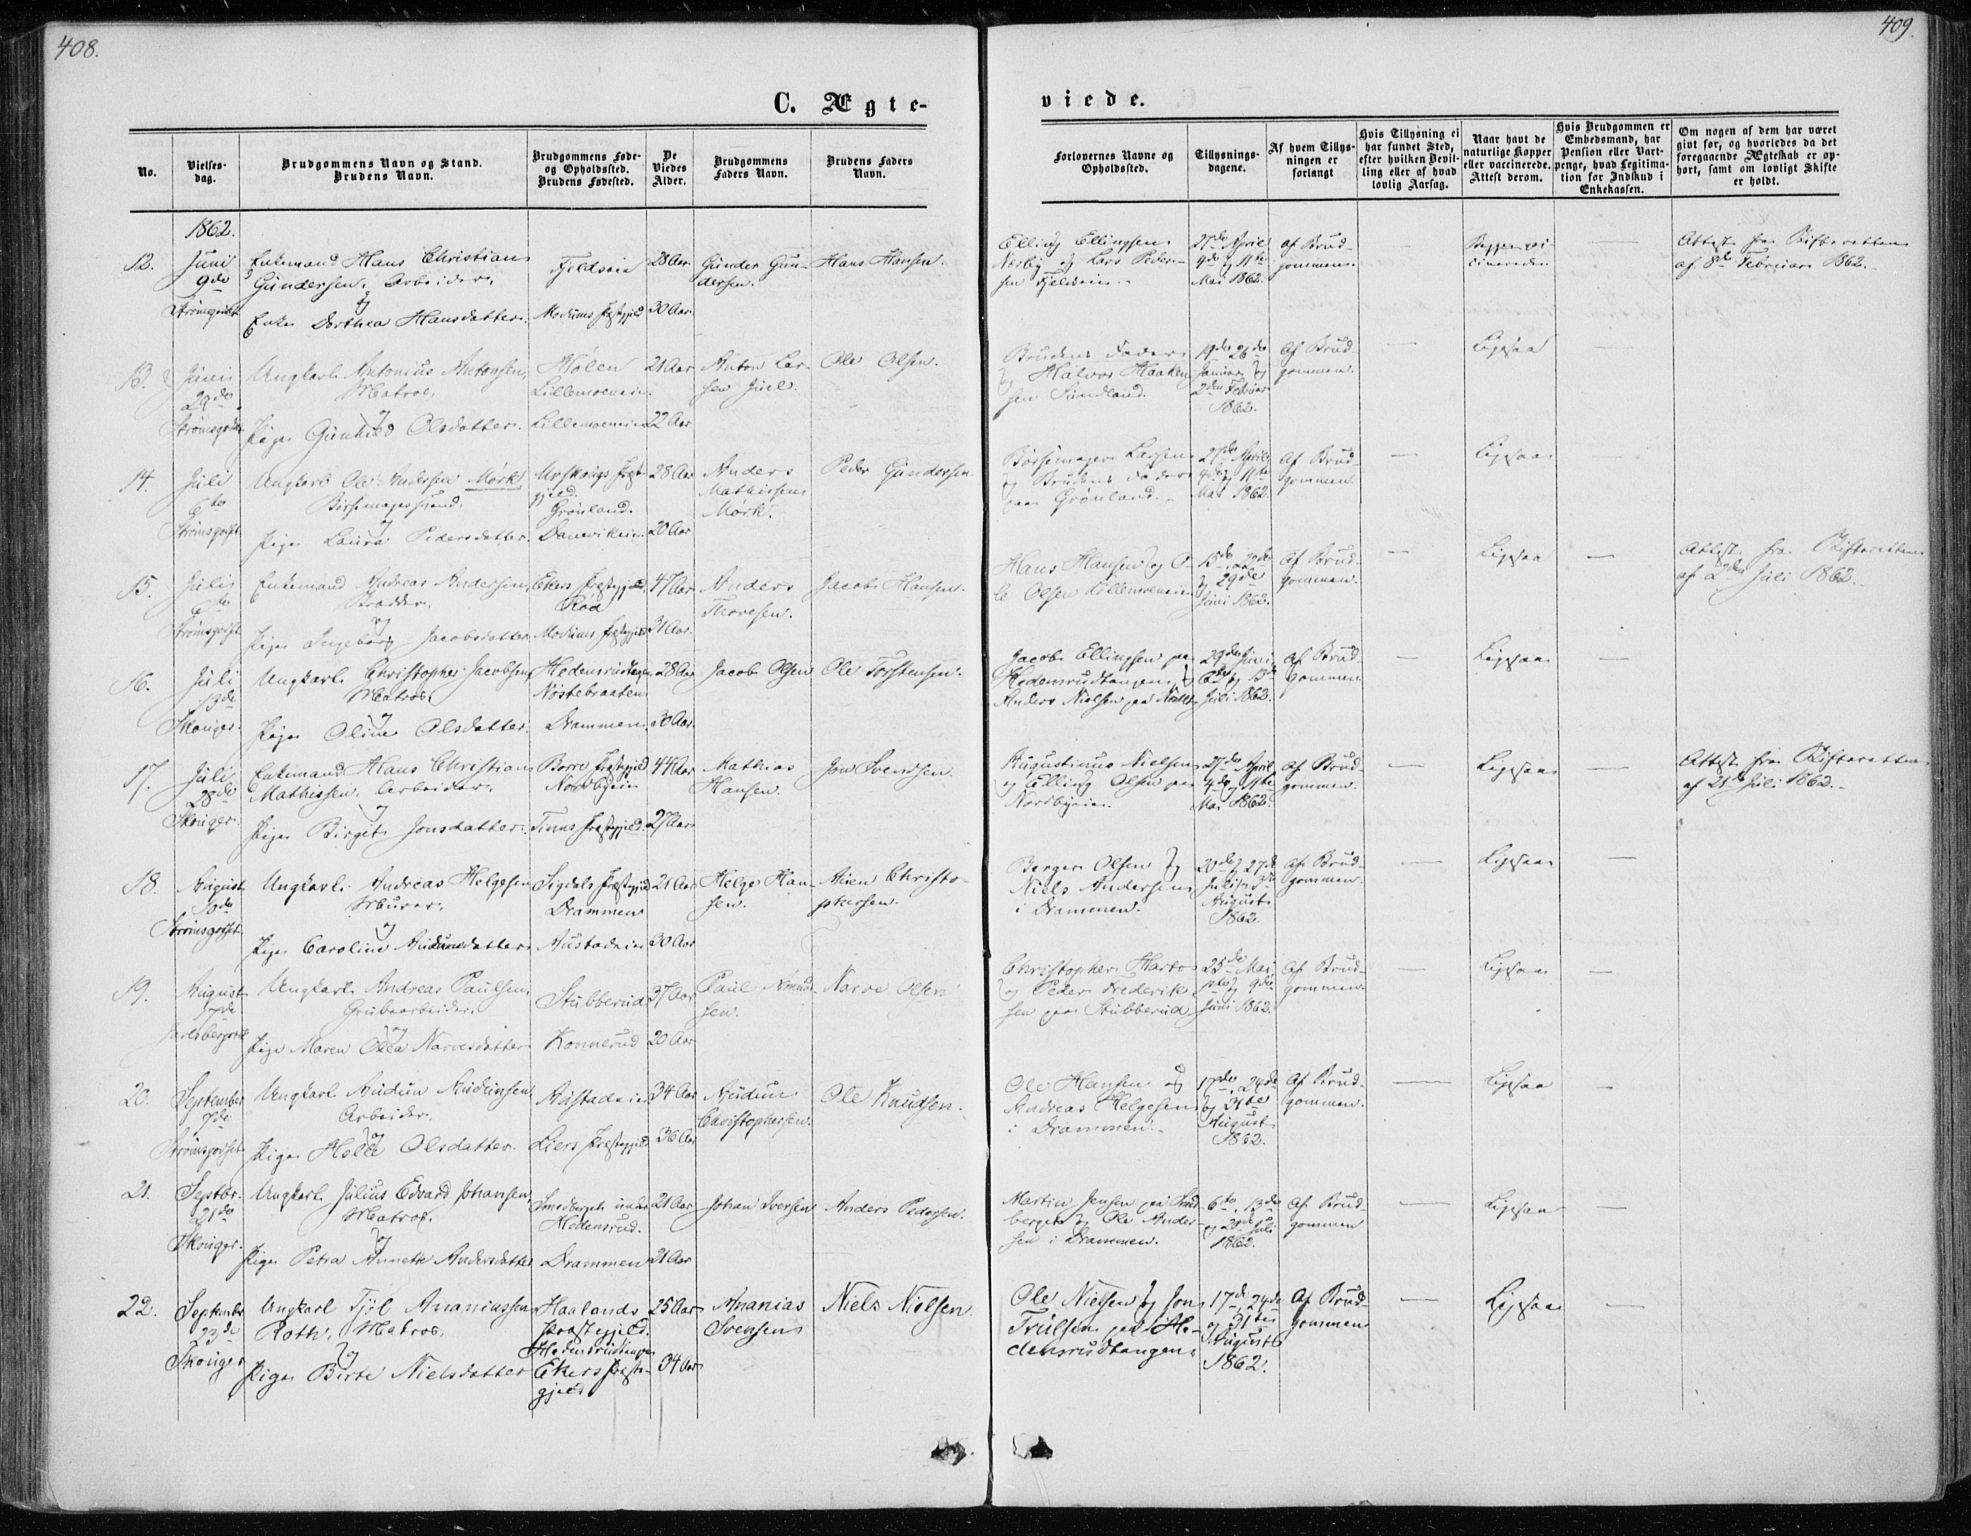 408.
409.
C. Ægte-
viede.
No.
Vielses-
dag.
Brudgommens Navn og Stand.
Brudens Navn.
Brudgommens Føde-
og Opholdssted.
Brudens Fødested.
De
Viedes
Alder.
Brudgommens
Faders Navn.
Brudens Faders
Navn.
Forlovernes Navne og
Opholdssted.
Tillysnings-
dagene.
Af hvem Tillys-
ningen er
forlangt
Hvis Tillysning ei
har fundet Sted,
efter hvilken Bevil-
ling eller af hvad
lovlig Aarsag.
Naar havt de
naturlige Kopper
eller vaccinerede.
Attest derom.
Hvis Brudgommen er
Embedsmand, har
Pension eller Vart-
penge, hvad Legitima-
tion for Indskud i
Enkekassen.
Om nogen af dem har været
givt før, og hvorledes da det
foregaaende Ægteskab er op-
hørt, samt om lovligt Skifte
er holdt.
1862.
12.
Juni
9de
Strømsgodset
Enkemand Hans Christian
Gundersen, Arbeider,
og
Enke Dorthea Hansdatter.
Fjeldveien
Modums Præstegjeld
28 Aar
30 Aar
Gunder Gun-
dersen.
Hans Hansen.
Elling Ellingsen
og Lars Peder-
sen Fjeldveien.
27de April
4de og 11te
Mai 1862.
af Brud-
gommen.
Attest fra Skifteretten
af 8de Februar 1862.
13.
Juni
29de
Strømsgodset
Ungkarl Antonius Antonsen,
Matros,
og
Pige Gunhild Olsdatter.
Hølen
Lillemoeneie.
Lillemoeneie
21 Aar
22 Aar
Anton Lar-
sen Juel.
Ole Olsen.
Brudens Fader
og Halvor Haaken-
sen Sundland.
19de 26de
Januar og
2den Februar
1862.
af Brud-
gommen.
Ligesaa
14.
Juli
6te
Strømsgodset
Ungkarl Ole Andersen Mørk
Børsemagersvend.
og
Pige Laura Pedersdatter.
Urskougs Præst-
gjeld.
Grønland.
Danevikeie
28 Aar
20 Aar
Anders
Mathissen
Mørk.
Peder Gundersen
Børsemager Larsen
og Brudens Fader
paa Grønland.
27de April
4de og 11te
Mai 1862.
af Brud-
gommen.
Ligesaa
15.
Juli
6te
Strømsgodset
Enkemand Andreas Andersen,
og
Pige Ingeborg Jacobsdatter
Ekers Præstegjeld
Modums Præstegjeld
47 Aar
31 Aar.
Anders
Thoresen.
Jacob Hansen.
Hans Hansen og O-
le Olsen Lillemoeneie
15de 22de
og 29de
Juni 1862.
af Brud-
gommen.
Ligesaa
Attest fra Skifteretten
af 2den Juli 1862.
16.
Juli
13de
Skouger.
Ungkarl Christopher Jacobsen
Matros,
og
Pige Oline Olsdatter
Hedensrudtangen
Nøstebraaten
Drammen
28 Aar
30 Aar.
Jacob Olsen
Ole Torstensen.
Jacob Ellingsen paa
Hedensrudtangen og
Anders Nielsen paa
29de Juni
6te og 13de
Juli 1862.
af Brud-
gommen
Ligesaa
17.
Juli
28de
Skouger.
Enkemand Hans Christian
Mathissen. Arbeider.
og
Pige Birgit Jonsdatter.
Borre Præstegjeld
Nordbyeie
Tinns Præstegjeld.
44 Aar
27 Aar
Mathias
Hansen.
Jon Svendsen.
Augustinus Nielsen
og Elling Olsen paa
Nordbyeie.
27de April
4de og 11te
Mai 1862.
af Brud-
gommen.
Ligesaa
Attest fra Skifteretten
af 21de Juli 1862.
18.
August
10de
Strømsgodset
Ungkarl Andreas Helgesen
Murer,
og
Pige Caroline Audunsdatter
Sigdals Præstegjeld
Drammen
Austadeie
21 Aar
30 Aar
Helge Han-
sen.
Christo-
phersen.
Berger Olsen og
Niels Andersen
i Drammen.
20de og 27de
Juli og 3de
August
1862.
af Brud-
gommen.
Ligesaa
19.
August
17de
Jarlsbergværk
Ungkarl Andreas Paulsen
Grubearbeider.
og
Pige Maren Olea Narvesdatter
Stubberud
Konnerud
37 Aar
20 Aar
Paul Amund-
sen.
Narve Olsen
Christopher
og Peder Frederik-
sen paa Stubberud
25de Mai
1ste og 9de
Juni 1862.
af Brud-
gommen.
Ligesaa
20.
September
7de
Strømsgodset
Ungkarl Audun Audunsen
Arbeider.
og
Pige Olsdatter.
Austadeie
Liers Præstegjeld
34 Aar
36 Aar
Audun
Christophersen.
Ole Knudsen.
Ole Hansen og
Andreas Helgesen
i Drammen.
17de, 24de
og 31te
August
1862.
af Brud-
gommen.
Ligesaa
21.
Septbr.
21de
Skouger.
Ungkarl Julius Edvard Johansen,
Matros.
og
Pige Petra Annette Andersdatter
Smedberget under
Hedensrud.
Drammen
21 Aar
21 Aar
Johan Iversen
Anders Pedersen.
Martin Jensen paa Smed-
berget og Ole Ander-
sen i Drammen.
6te, 13de
og 20de Juli
1862.
af Brud-
gommen
Ligesaa
22.
Septembr
23de
Skouger
Ungkarl Tjøl Ananiassen
Roth, Matros,
og
Pige Birte Nielsdatter
Haalands
Præstegjeld.
Hedensrudtangen
Ekers Præste-
gjeld
25 Aar
34 Aar
Ananias
Svensen
Niels Nielsen.
Ole Nielsen og Jon
Trulsen paa He-
densrudtangen.
17de, 24de
og 31te
August
1862.
af Brud-
gommen
Ligesaa